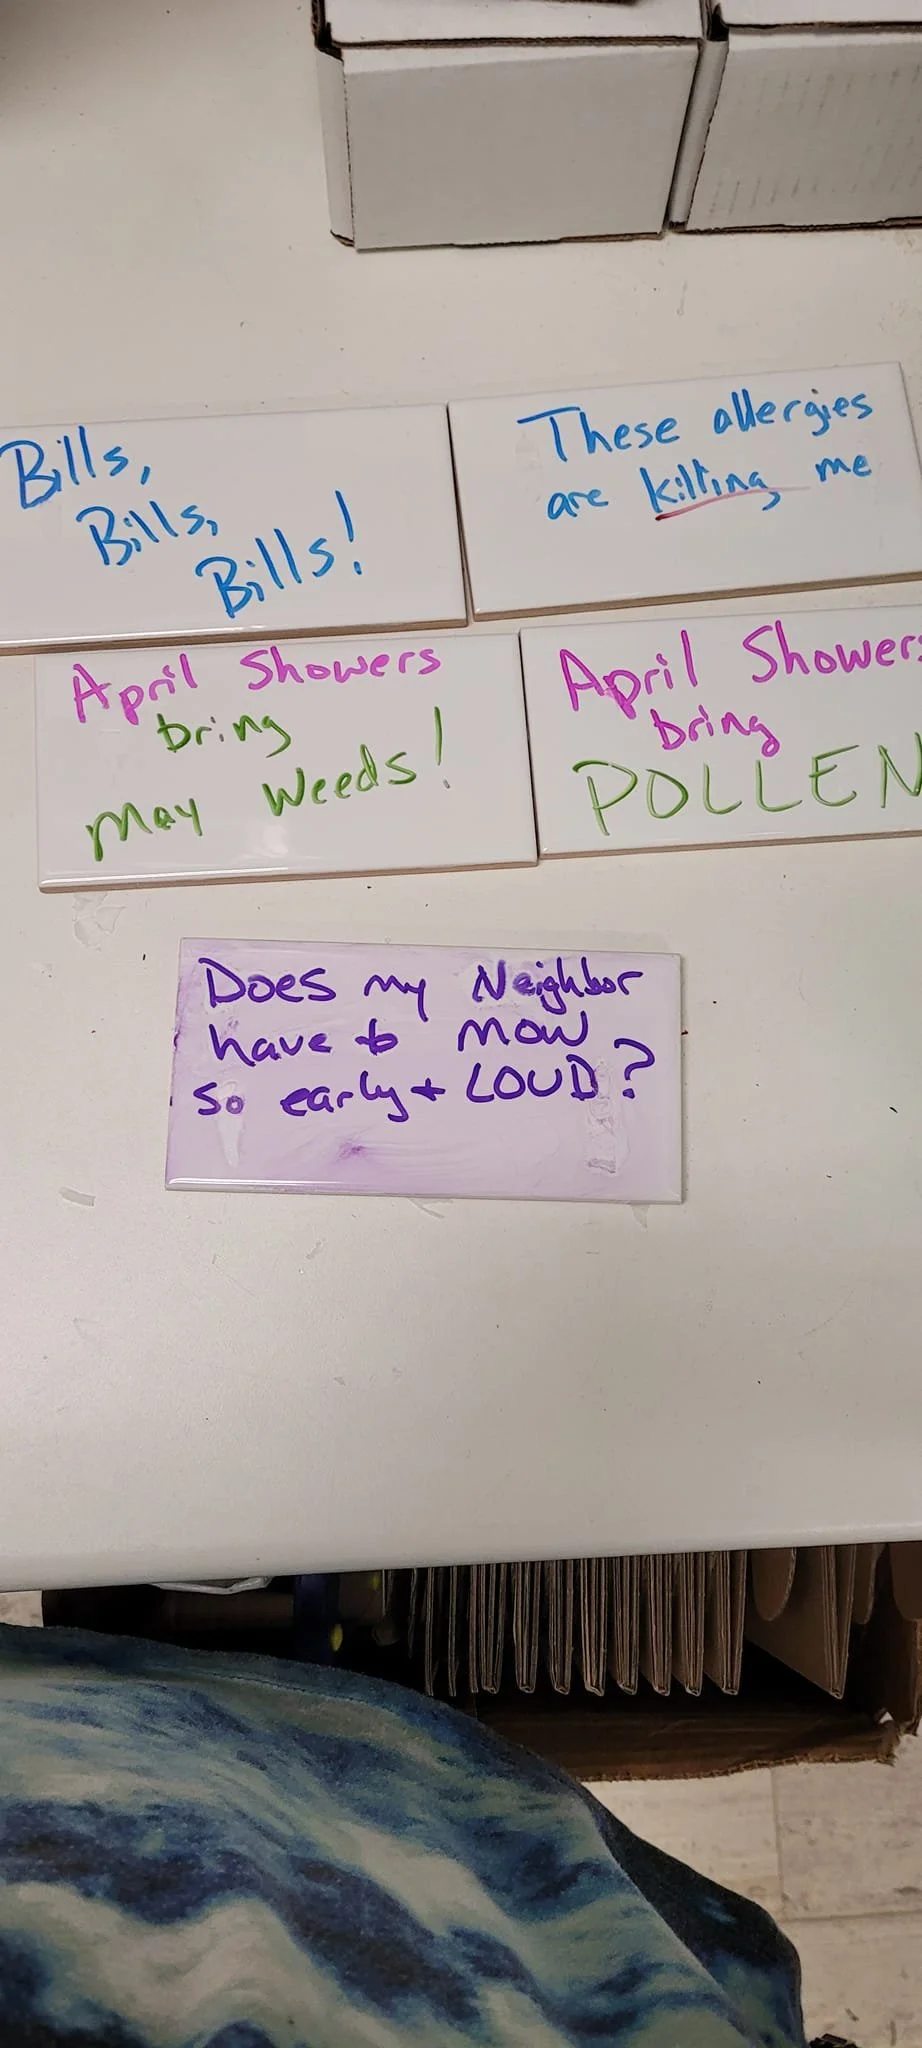 Bills,
Bills,
Bills!
These allergies
are killing me
April Showers
bring
May Weeds!
April Showers
bring
POLLEN
Does my Neighbor
have to MOW
so early + LOUD?